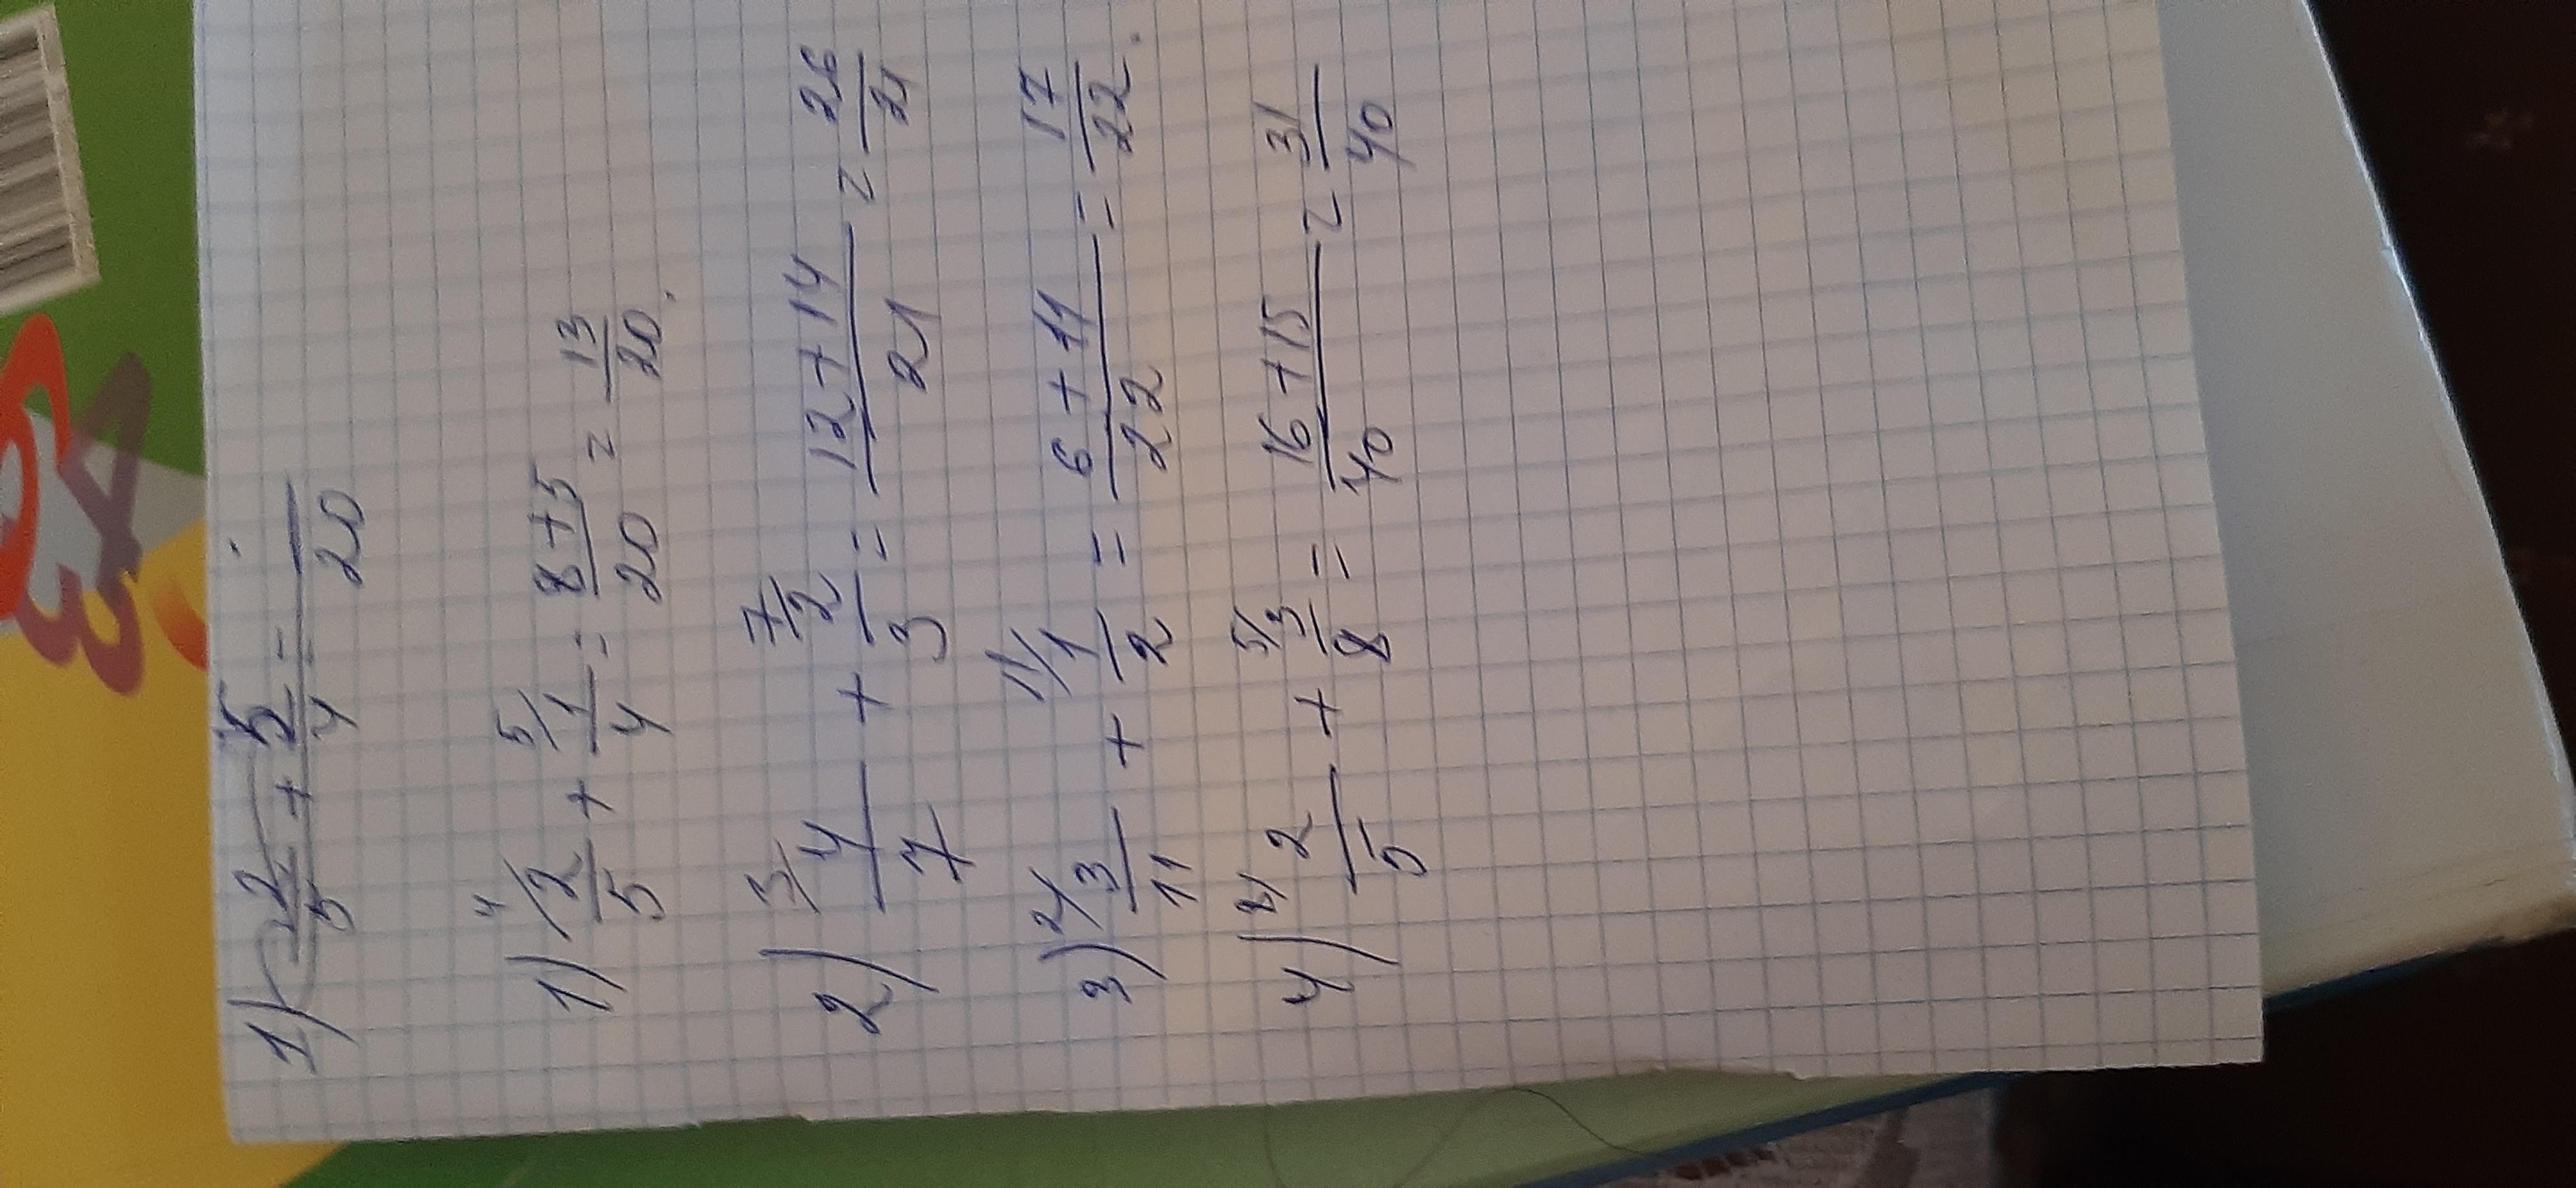 1) 2/5 + 5/4 = /20
1) 4/ 2/5 + 5/ 1/4 = 8+5/20 = 13/20.
2) 3/ 4/7 + 7/ 2/3 = 12+14/21 = 26/21
3) 2/ 3/11 + 11/ 1/2 = 6+11/22 = 17/22.
4) 2/5 + 5/ 3/8 = 16+15/40 = 31/40